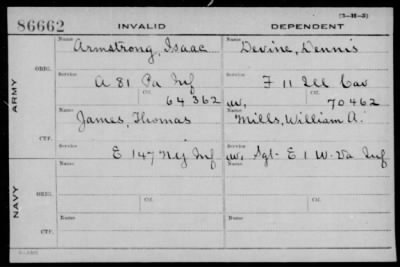 (3-H-3)
86662 INVALID DEPENDENT
ARMY
ORIG.
Name Armstrong, Isaac Name Devine, Dennis
Service A 81 Pa Inf Service F 11 Ill Cav
Ctf. 64362 Ctf. 70462
CTF.
Name James, Thomas Name Mills, William A.
Service E 147 N.Y. Inf Service Sgt. E 1 W. Va Inf
NAVY
ORIG.
Name Name
Service Ctf. Service Ctf.
CTF.
Name Name